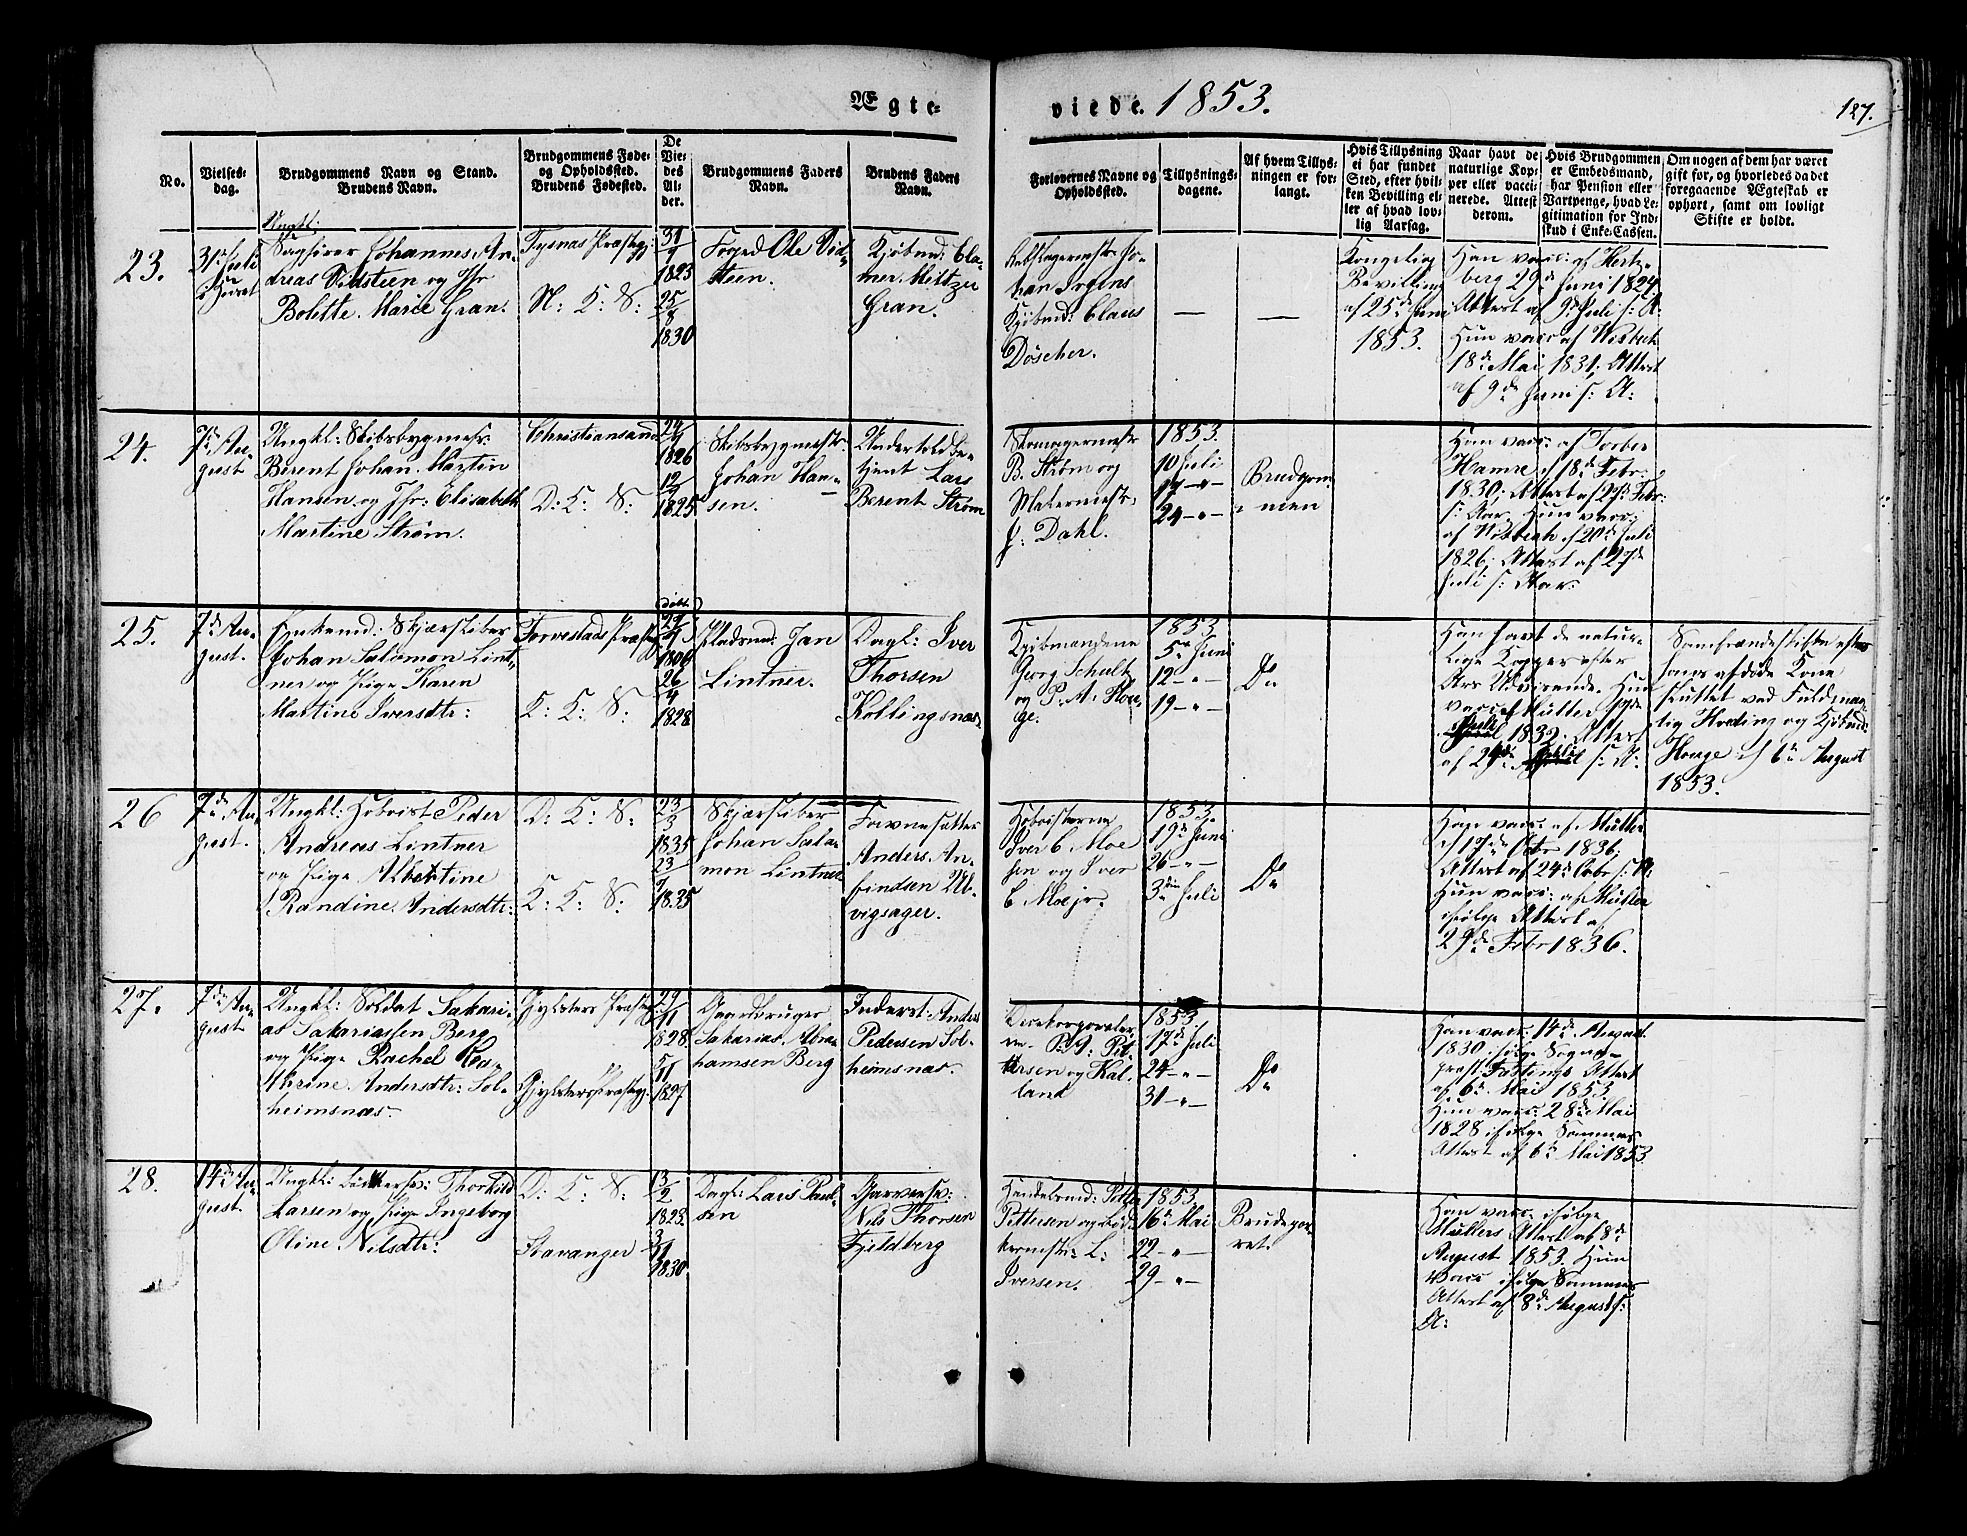 Ægte-
viede. 1853.
127.
No.
Vielses-
dag.
Brudgommens Navn og Stand.
Brudens Navn.
Brudgommens Føde-
og Opholdssted.
Brudens Fødested.
De
Vie-
des
Al-
der.
Brudgommens Faders
Navn.
Brudens Faders
Navn.
Forlovernes Navne og
Opholdssted.
Tillysnings-
dagene.
Af hvem Tillys-
ningen er for-
langt.
Hvis Tillysning
ei har fundet
Sted, efter hvil-
ken Bevilling el-
ler af hvad lov-
lig Aarsag.
Naar havt de
naturlige Kop-
per eller vacci-
nerede. Attest
derom.
Hvis Brudgommen
er Embedsmand,
har Pension eller
Vartpenge, hvad Le-
gitimation for Ind-
skud i Enke-Cassen.
Om nogen af dem har været
gift før, og hvorledes da det
foregaaende Ægteskab er
ophørt, samt om lovligt
Skifte er holdt.
23.
31te Juli
i Huset
Ungkl:
Sagfører Johannes An-
dreas Vidsteen og Jfr
Bolette Marie Gran.
Tysnæs Præstegj
H: K: S:
31/1
1823
25/8
1830
Foged Ole Vid-
steen.
Kjøbmd: Cla-
mer Miltzu
Gran.
Johan Irgens
Kjøbmd: Claus
Döscher.
—
—
Kongelig
Bevilling
af 25de Juni
1853.
Han vacc: af Hertz-
berg 29de Juni 1824
Attest af 9de Juli s: A.
Hun vacc: af Wisbech
18de Mai 1831. Attest
af 9de Juni s: A:
24.
7de Au-
gust
Ungkl: Skibsbygmes:
Berent Johan Martin
Hansen og Jfr: Elisabeth
Martine Strøm.
Christiansand
D: K: S:
1826
12/
1825
Skibsbygmestr.
Johan Han-
sen.
Undertoldbe-
tjent Lars
Berent Strøm
Skomagermestr
B. Strøm og
Malermestr:
J: Dahl.
1853.
10 Juli
17 - " -
24 - " -
Brudgom-
men
Han vacc: af Forber
Hamre 18de Febr:
1830; Attest af 27de Febr:
s: Aar. Hun vacc:
af Wisbech 20de Juli
1826; Attest af 27de
Juli s: Aar.
25.
7de Au-
gust.
Enkemd: Skjærsliber
Johan Salomon Lint-
ner og Pige Karen
Martine Iversdtr:
Torvestads Præstegj
K: K: S:
døbt
1806
26/4
1828
Pladsmd: Jan
Lintner.
Dagl: Iver
Thorsen
Kollingsnæs
Kjøbmændene
Georg Schult
og P. A. Ploe-
ge.
1853
5te Juni
12 - " -
19 - " -
Do
Han havt de natur-
lige Kopper efter
Ars Udvisende. Hun
vacc: af Müller
Juli 1832. Attest
af 29de Juli s: A:
Samfrændeskifte efter
hans afdøde Kone
sluttet ved Fuldmæg-
tig Hveding og Kjøbmd:
Houge 6te August
1853.
26
7de Au-
gust.
Ungkl: Hoboist Peder
Andreas Lintner
og Pige Albertine
Randine Andersdtr:
D: K: S:
K: K: S:
23/3
1835
23/
1835
Skjærsliber
Johan Salo-
mon Lintner
Favnesetter
Anders An-
findsen Ub-
vigsager.
Hoboisterne
Iver C. Moe
sen og Iver
C. Moe jr.
1853.
19de Juni
26 - " -
3die Juli
Do
Han vacc: af Müller
17de Octbr 1836;
Attest af 24de Octbr s: A:
Hun vacc: af Müller
ifølge Attest af
29de Febr 1836.
27.
7de Au-
gust
Ungkl: Soldat Sakari-
as Sakariassen Berg
og Pige Rachel Ca-
thrine Andersdtr: Sol-
heimsnæs.
Gjylsters Præstegj.
Gjylsters Præstegj:
29/11
1828.
5/11
1827
Gaardbruger
Sakarias Abra-
hamsen Berg
Inderst: Anders
Pedersen Sol-
heimsnæs.
Vicekorporaler-
ne P. G. Pet-
tersen og Kal-
land
1853
17de Juli
24 - " -
31 - " -
Do
Han vacc: 14de August
1830 ifølge Sogne-
præst Føstings Attest
af 6te Mai 1853.
Hun vacc: 28de Mai
1828 ifølge Sammes
Attest af 6te Mai 1853.
28.
14de Au-
gust.
Ungkl: Bødkersv: Thorkild
Larsen og Pige Ingeborg
Oline Nilsdtr:
D: K: S:
Stavanger
13/2
1823.
3/11
1830.
Dagl: Lars Paul-
sen
Garversv:
Nils Thorsen
Fjeldberg
Handelsmd: Petter
Pettersen og Bød-
kermestr: L:
Iversen.
1853.
16de Mai
22 - " -
29 - " -
Brudepar-
ret.
Han vacc: ifølge
Müllers Attest af 8de
August 1853. Hun
vacc: ifølge Sammes
Attest af 8de August s:
A: